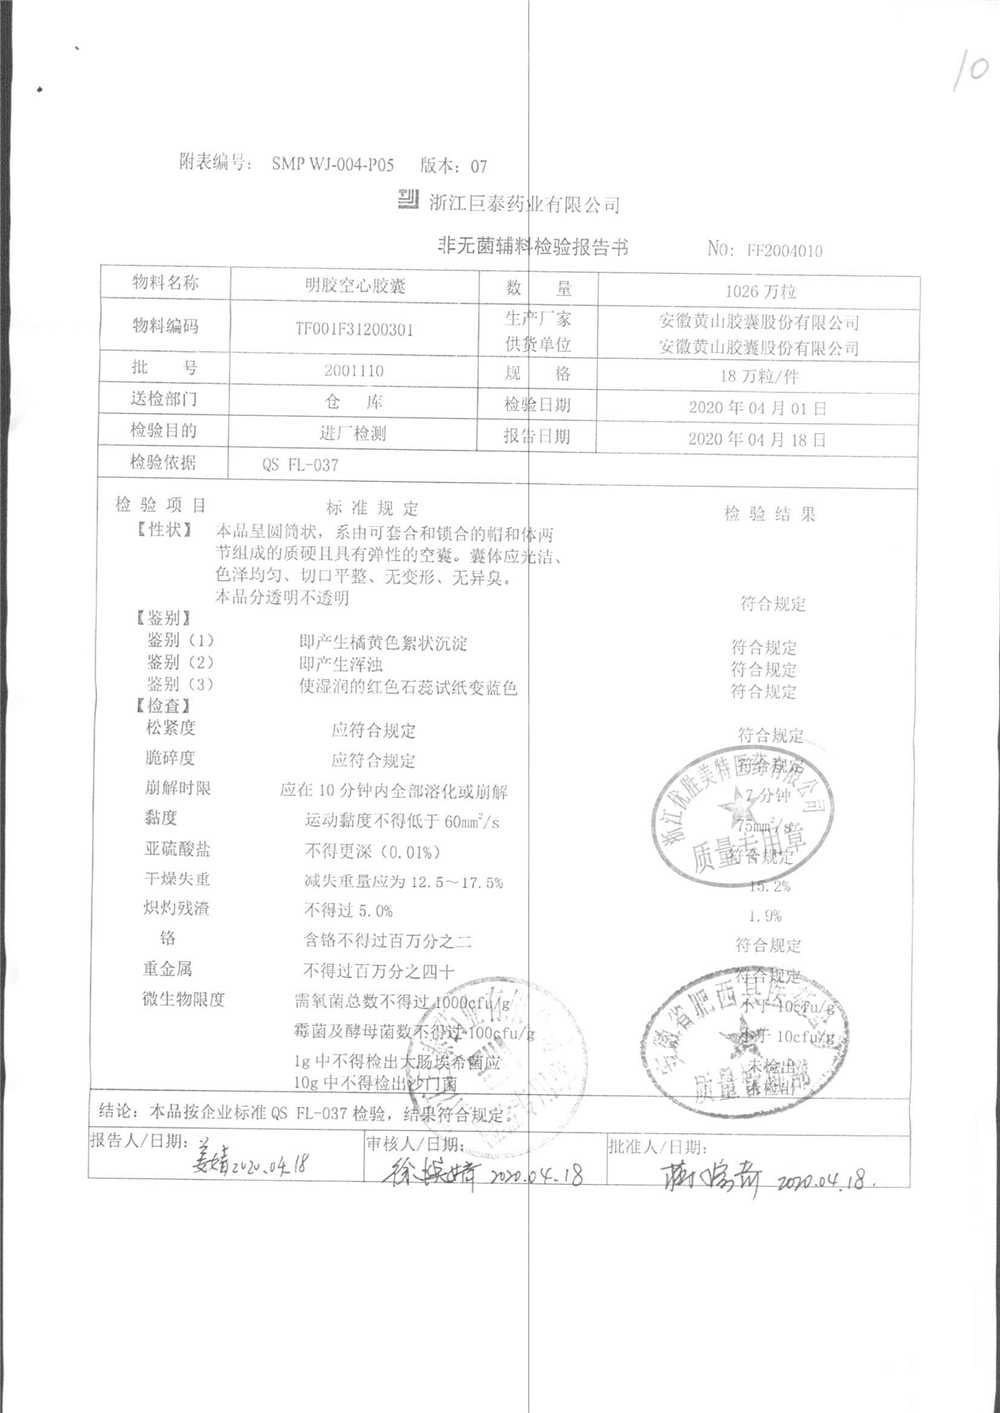 10
附表编号: SMP WJ-004-P05 版本: 07
浙江巨泰药业有限公司
非无菌辅料检验报告书 NO: FF2004010
物料名称 明胶空心胶囊 数 量 1026 万粒
物料编码 TF001F31200301 生产厂家 安徽黄山胶囊股份有限公司
供货单位 安徽黄山胶囊股份有限公司
批 号 2001110 规 格 18 万粒/件
送检部门 仓 库 检验日期 2020 年 04 月 01 日
检验目的 进厂检测 报告日期 2020 年 04 月 18 日
检验依据 QS FL-037
检 验 项 目 标 准 规 定 检 验 结 果
【性状】 本品呈圆筒状，系由可套合和锁合的帽和体两
节组成的质硬且具有弹性的空囊。囊体应光洁、
色泽均匀、切口平整、无变形、无异臭。
本品分透明不透明 符合规定
【鉴别】
鉴别（1） 即产生橘黄色絮状沉淀 符合规定
鉴别（2） 即产生浑浊 符合规定
鉴别（3） 使湿润的红色石蕊试纸变蓝色 符合规定
【检查】
松紧度 应符合规定 符合规定
脆碎度 应符合规定 符合规定
崩解时限 应在 10 分钟内全部溶化或崩解 7 分钟
黏度 运动黏度不得低于 60mm²/s 75mm²/s
亚硫酸盐 不得更深（0.01%） 符合规定
干燥失重 减失重量应为 12.5～17.5% 15.2%
炽灼残渣 不得过 5.0% 1.9%
铬 含铬不得过百万分之二 符合规定
重金属 不得过百万分之四十 符合规定
微生物限度 需氧菌总数不得过 1000cfu/g 小于 10cfu/g
霉菌及酵母菌数不得过 100cfu/g 小于 10cfu/g
1g 中不得检出大肠埃希菌应 未检出
10g 中不得检出沙门菌 未检出
浙江优胜美特医药有限公司
质量专用章
安徽省肥西县医
质量
结论: 本品按企业标准 QS FL-037 检验，结果符合规定。
报告人/日期: 姜婧 2020.04.18 审核人/日期: 徐 2020.04.18 批准人/日期: 2020.04.18.